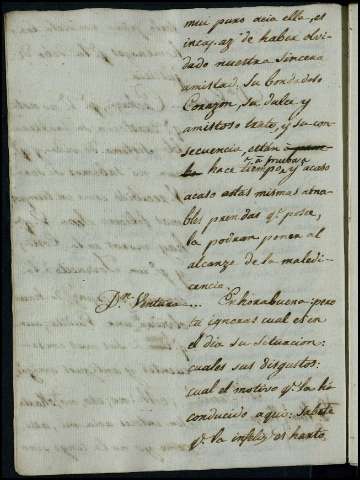 muy puro acia ella, es
incapaz de haber olvi-
dado nuestra sincera
amistad. Su bondadoso
Corazon, su dulce y
amistoso trato, y su con-
secuencia, están
a prueba
hace tiempo, y acaso
acaso estas mismas ama-
bles prendas q.e posee,
la podran poner al
alcanze de la maledi-
cencia.
D.n Ventura... Enhorabuena: pero
tu ignoras cual es en
el dia su situacion:
cuales sus disgustos:
cual el motivo q.e la ha
conducido aqui: Sabete
q.e la infeliz es harto